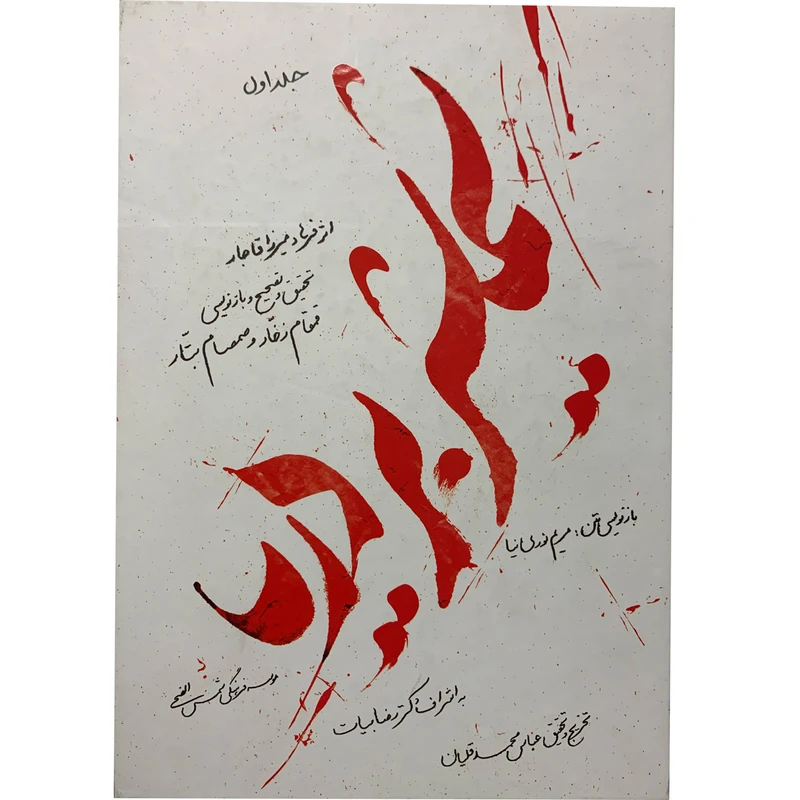 جلد اول
اثر فرهاد میرزا قاجار
تحقیق و تصحیح و بازنویسی
قمقام زخّار و صمصام بتّار
بازنویسی متن: مریم نوری نیا
موسسه فرهنگی شمس الضحی
به اشراف: دکتر رضا بیات
تخریج و تحقیق: عباس محمدقلیان